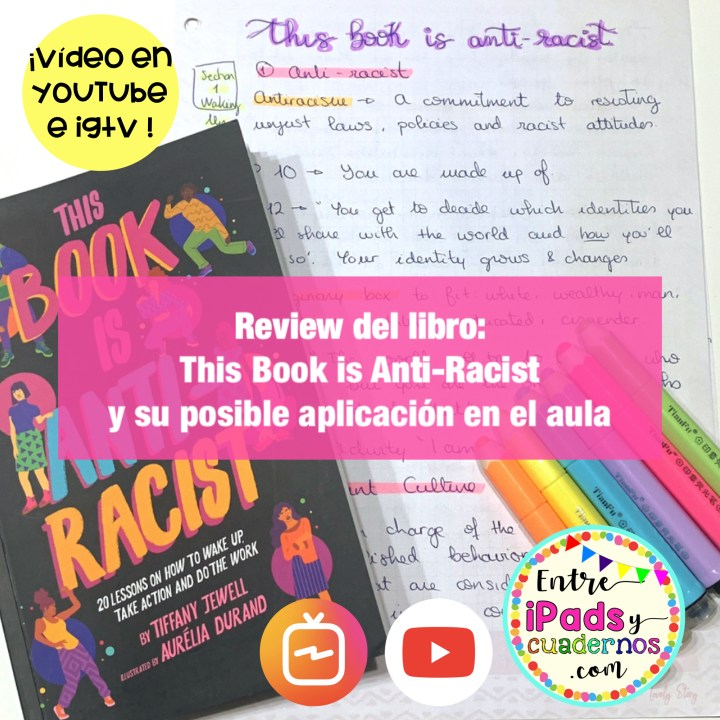 ¡Vídeo en
YouTube
e igtv !
This Book is anti-racist
Section
1
Waking
① Anti-racist
Antiracism → A commitment to resisting
unjust laws, policies and racist attitudes.
10 → You are made up of
12 → "You get to decide which identities you
share with the world and how you'll
so". Your identity grows & changes
box to fit: white, wealthy, man,
cisgender
who
Review del libro:
This Book is Anti-Racist
y su posible aplicación en el aula
I am
Culture
charge of the
behavior
are
THIS
BOOK
IS
ANTI-
RACIST
20 LESSONS ON HOW TO WAKE UP,
TAKE ACTION AND DO THE WORK
BY TIFFANY JEWELL
ILLUSTRATED BY AURÉLIA DURAND
TianFu
TianFu
TianFu
TianFu
Entre
iPads y
cuadernos
.com